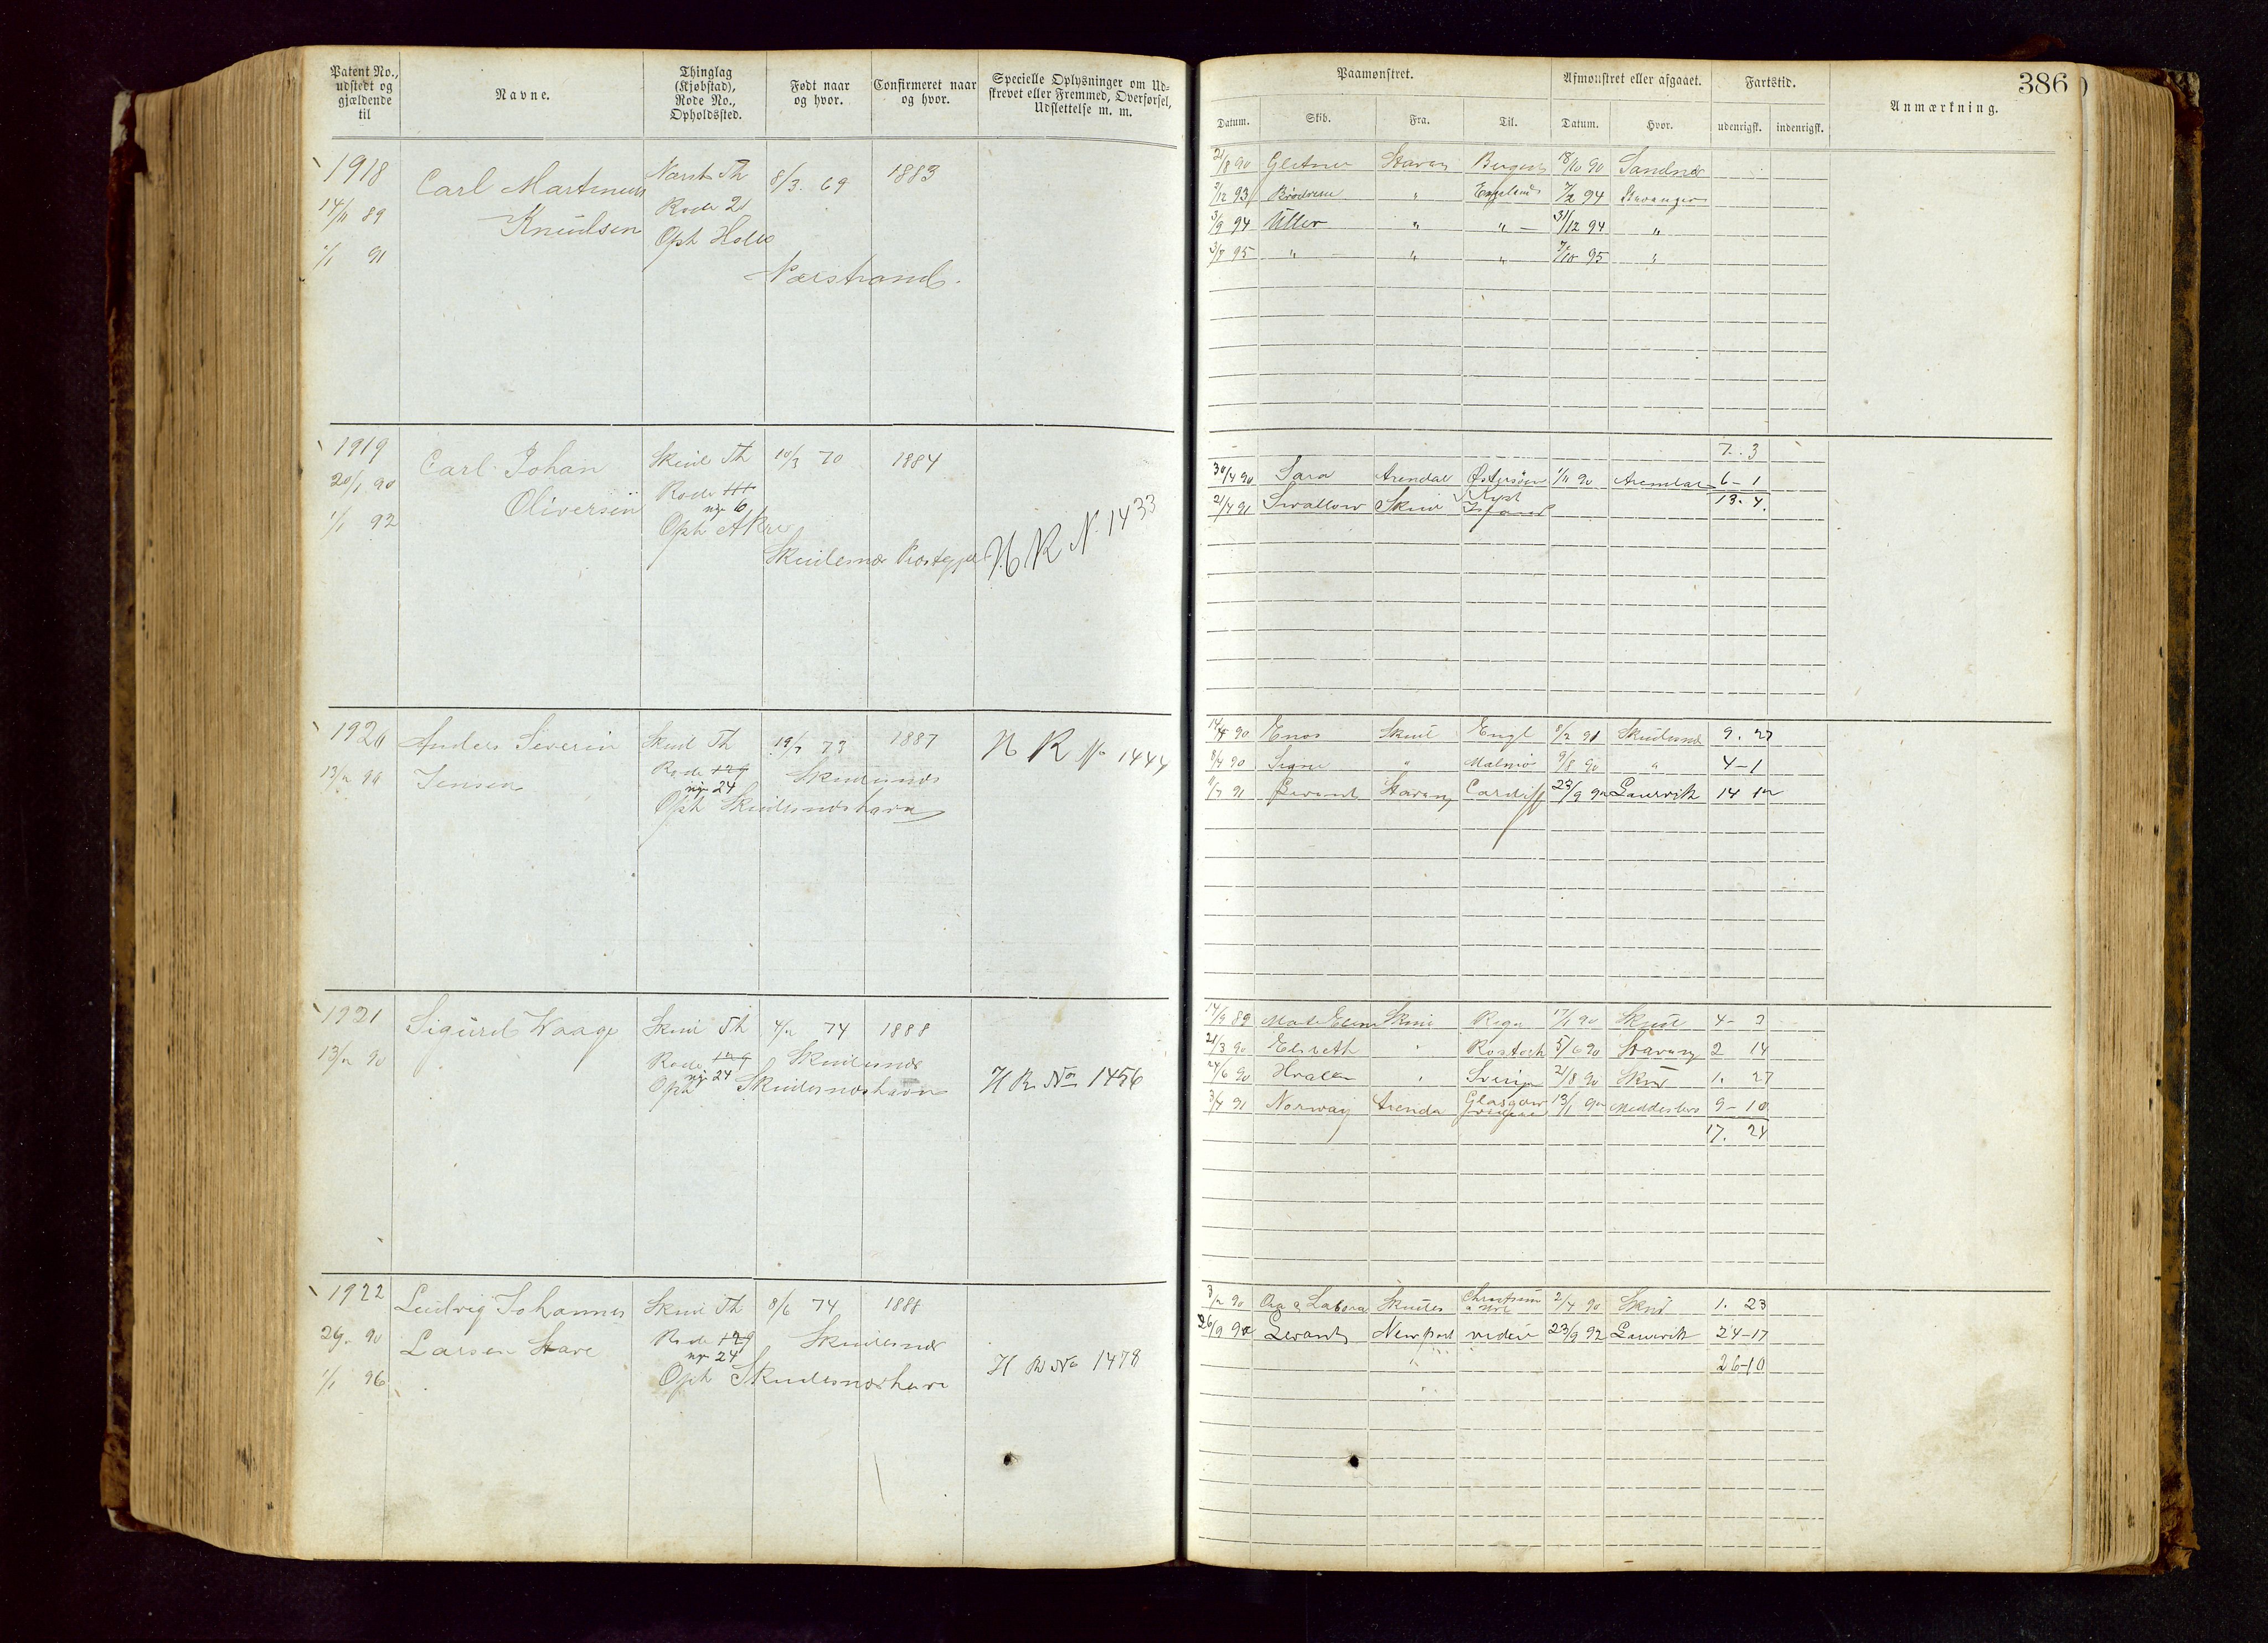 Patent No., udstedt og gjældende til
Navne.
Thinglag (Kjøbstad), Rode No., Opholdssted.
Født naar og hvor.
Confirmeret naar og hvor.
Specielle Oplysninger om Udskrevet eller Fremmed, Overførsel, Udslettelse m. m.
Paamønstret.
Afmønstret eller afgaaet.
Fartstid.
Anmærkning.
386
Datum.
Skib.
Fra.
Til.
Datum.
Hvor.
udenrigsk.
indenrigsk.
1918 Carl Martinus Nærst Th 8/3. 69 1883
14/11 89 Knudsen Rode 21
1/1 91 Oph
Nærstrand.
21/8 90 Gleitner Stavang Bergen 18/10 90 Sandnæs
2/12 93 England 7/2 94 Stavanger
3/9 94 Uller " " — 31/12 94 "
3/8 95 " " " 7/10 95 "
1919 Carl Johan Skud Th 10/3 70 1884
20/1 90 Oliversen Rode 111
ny 6
1/1 92 Oph Akre
Skudesnæs Prestegjeld H R N. 1433
7. 3
30/4 90 Sara Arendal Østersøen 1/11 90 Arendal 6-1
21/4 91 Swallow Skud 13. 4.
1920 Anders Severin Skud Th 19/7 73 1887 H R No 1444
13/2 90 Jensen Rode 129 Skudesnæs
ny 24
Oph Skudesnæshavn
14/4 90 Enos Skud Engl 8/2 91 Skudesnæs 9. 27
8/4 90 Signe " Malmø 9/8 90 " 4-1
Stavang Cardiff 23/9 92 Laurvik 14 12
1921 Sigurd Waage Skud Th 4/2 74 1888
13/2 90 Rode 129 Skudesnæs
ny 24
Oph Skudesnæshavn H R No 1456
14/9 89 Skud Riga 17/1 90 Skud 4- 3
21/3 90 Elisbeth " Rostock 5/6 90 Stavang 2 14
24/6 90 " 21/8 90 Skud 1. 27
3/4 91 Norway Arendal Glasgow 13/1 92 9-10
17. 24
1922 Ludvig Johannes Skud Th 8/6 74 1888
90 Larsen Rode 129 Skudesnæs
ny 24
1/1 96 Oph Skudesnæshavn H R No 1478
3/2 90 Ora & Labora Skudes 2/4 90 Skud 1. 23
26/9 90 Levant Newport videre 23/9 92 Laurvik 24-17
26-10